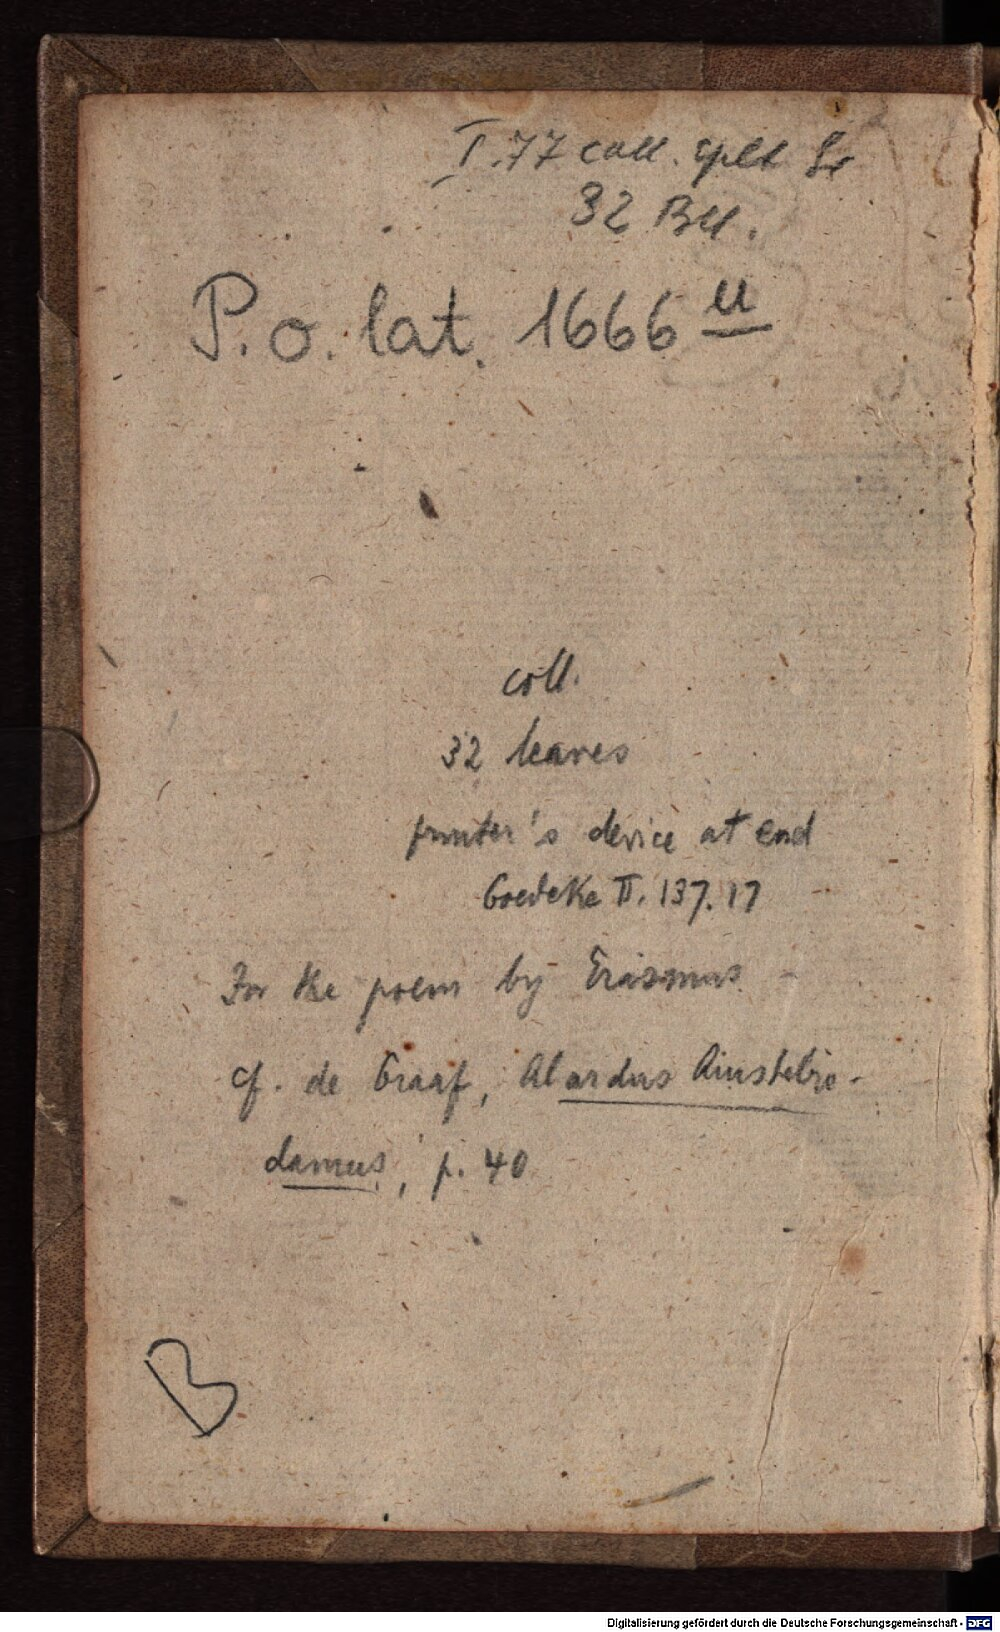 I.77 coll. cplt
32 Bll.
P.o. lat. 1666 u
coll.
32 leaves
printer's device at end
Goedeke II. 137. 17
For the poem by Erasmus
cf. de Graaf, Alardus Amstelre-
damus, p. 40
B
Digitalisierung gefördert durch die Deutsche Forschungsgemeinschaft - DFG